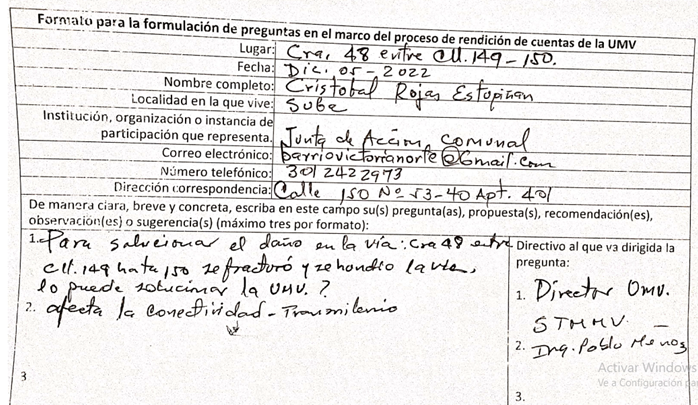 Formato para la formulación de preguntas en el marco del proceso de rendición de cuentas de la UMV
Lugar: Cra, 48 entre Cll. 149-150.
Fecha: Dic. 05-2022
Nombre completo: Cristobal Rojas Estopiñan
Localidad en la que vive: Suba
Institución, organización o instancia de
participación que representa. Junta de Acción, comunal
Correo electrónico: barriovictorianorte@Gmail.com
Número telefónico: 301 242 2973
Dirección correspondencia: Calle 150 Nº 53-40 Apt. 401
De manera clara, breve y concreta, escriba en este campo su(s) pregunta(as), propuesta(s), recomendación(es),
observación(es) o sugerencia(s) (máximo tres por formato):
1. Para solucionar el daño en la vía: Cra 48 entre
Cll. 149 hata 150 se fracturó y se hundio la via,
lo puede solucionar la UMV. ?
2. afecta la conectividad - Transmilenio
3
Directivo al que va dirigida la
pregunta:
1. Director UMV.
STMMV. -
2. Ing. Pablo
3.
Activar Windows
Ve a Configuración pa